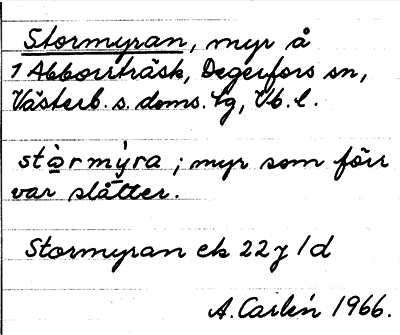 Stormyran, myr å
1 Abborrträsk, Degerfors sn,
Västerb. s. doms. tg, Vb. l.
stò̱rmy̓ra ; myr som förr
var slåtter.
Stormyran ek 22 7 1d
A. Carlén 1966.